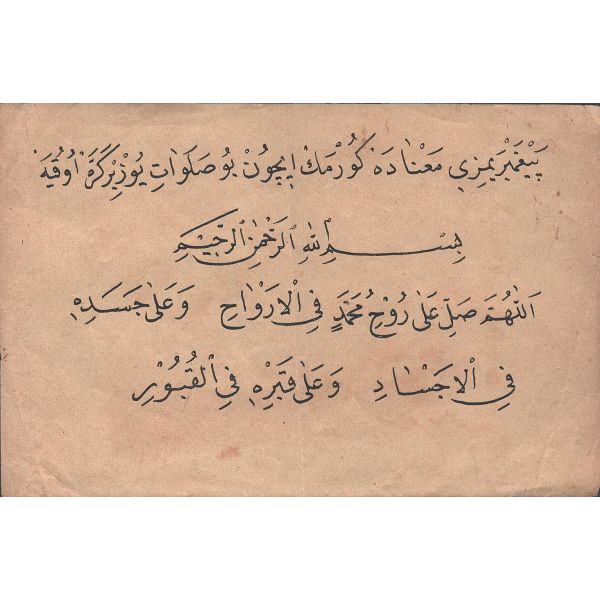 پَيْغَمْبَرِيمِزِي مَعْنَادَه كُورْمَكْ اِيچُونْ بُو صَلَوَاتِ يُوزْ بِرْ كَرَّه اُوقُيَه
بِسْمِ اللّٰهِ الرَّحْمٰنِ الرَّحِيمِ
اَللّٰهُمَّ صَلِّ عَلٰى رُوْحِ مُحَمَّدٍ فِي الْاَرْوَاحِ وَعَلٰى جَسَدِهِ
فِي الْاَجْسَادِ وَعَلٰى قَبْرِهِ فِي الْقُبُوْرِ